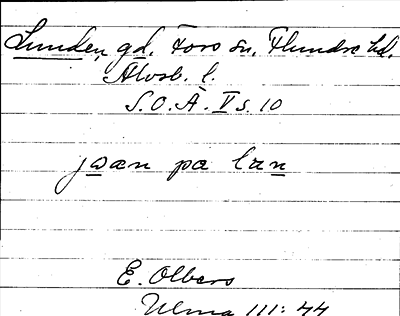 Lunden, gd, Fors sn, Flundre hd,
Älvsb. l.
S.O.Ä. V s. 10
pa
E. Olbers
Ulma 111: 44